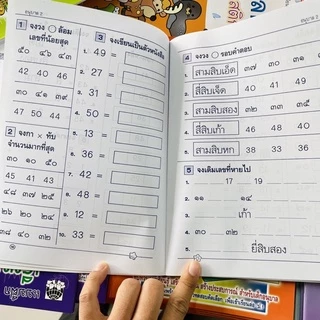 อนุบาล 2
1 จงวง ○ ล้อม
เลขที่น้อยสุด
๕๐ ๔๖ ๔๓
42 40 46
๓๐ ๔๑ ๓๙
47 50 44
2 จงกา × ทับ
จำนวนมากที่สุด
๓๐ ๑๐ ๕๐
45 43 42
๔๘ ๓๗ ๒๕
๒๖ ๒๐ ๒๔
๓๘ ๔๐ ๓๒
3 จงเขียนเป็นตัวหนังสือ
1. 49 =
2. 27 =
3. 31 =
4. 50 =
5. 13 =
6. 36 =
7. 42 =
8. 48 =
9. 12 =
10. 33 =
อนุบาล 2
4 จงวง ○ รอบคำตอบ
1. สามสิบเอ็ด ๓๗ ๓๐ ๓๑
2. สี่สิบเจ็ด 40 41 47
3. สามสิบสอง ๓๒ ๓๓ ๓๕
4. สี่สิบเก้า 46 48 49
5. สามสิบหก 38 33 36
5 จงเติมเลขที่หายไป
1. 17 19
2. ๑๑ ๑๔
3. เก้า
4. ๓๐ ๓๒
5. ยี่สิบสอง